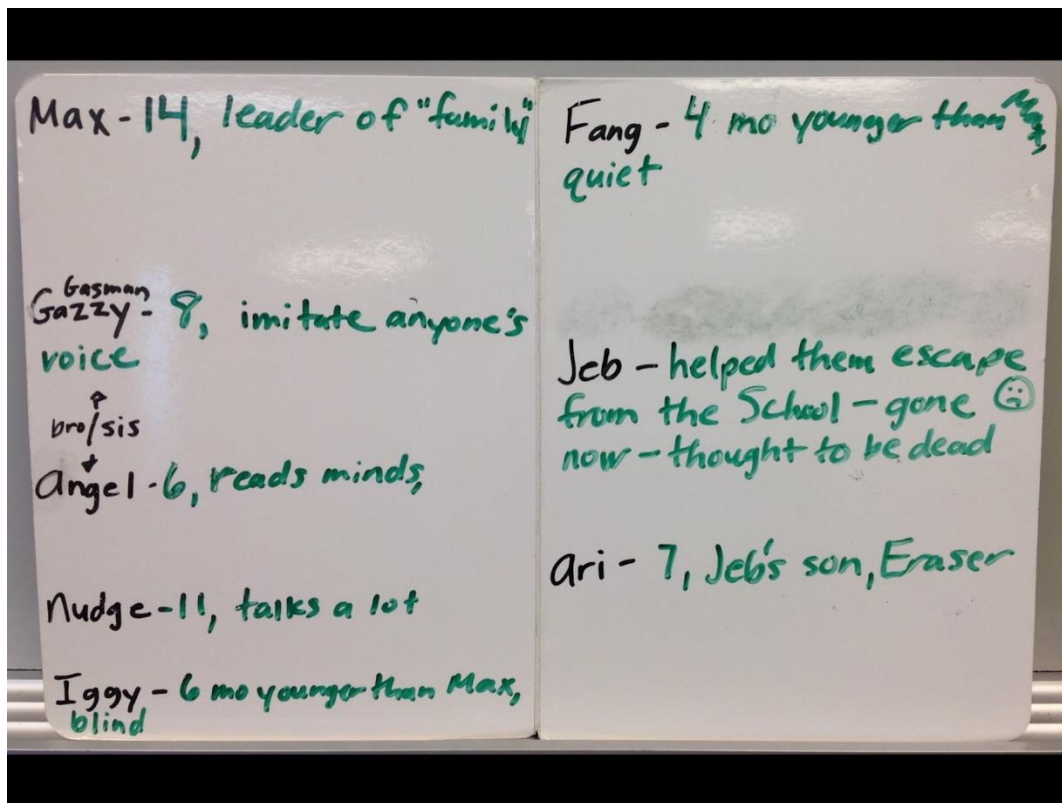 Max - 14, leader of "family"
Gasman
Gazzy - 8, imitate anyone's
voice
bro/sis
Angel - 6, reads minds,
Nudge - 11, talks a lot
Iggy - 6 mo younger than Max,
blind
Fang - 4 mo younger than Max,
quiet
Jeb - helped them escape
from the School - gone
now - thought to be dead
Ari - 7, Jeb's son, Eraser